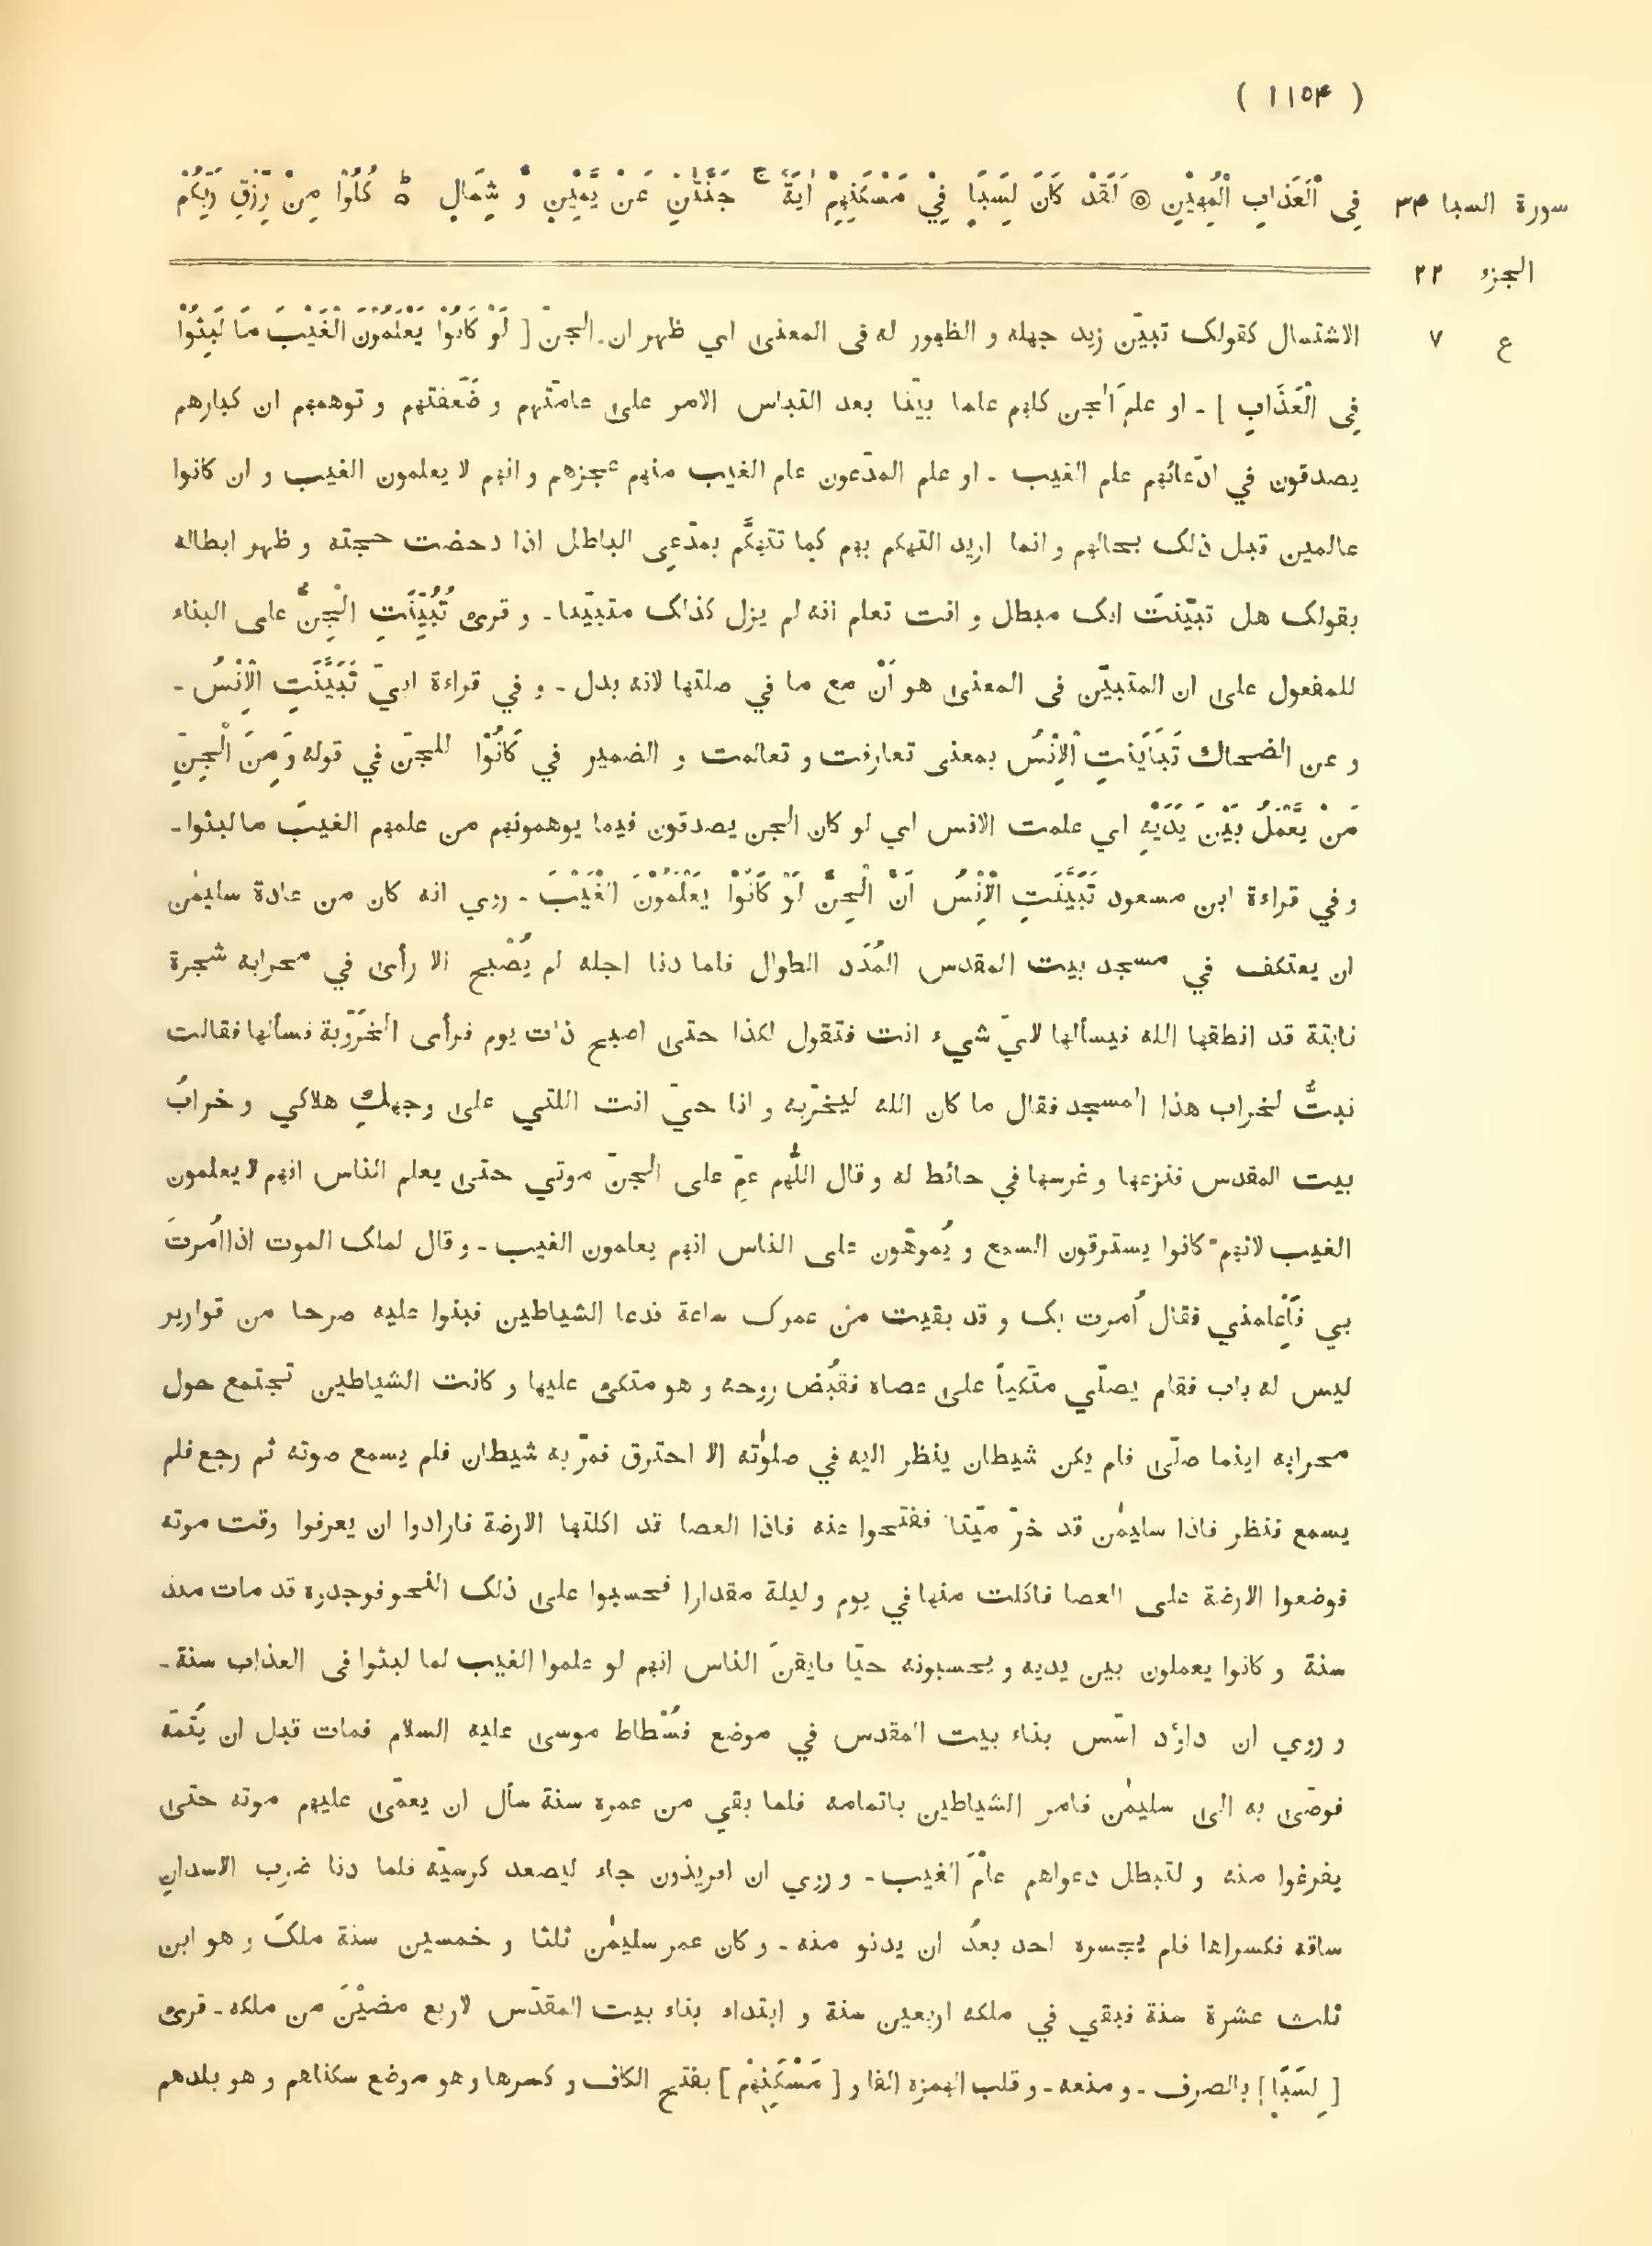 ( ١١٥۴ )
سورة السبا ٣۴
الجزء ٢٢
ع ٧
فِى الْعَذَابِ الْمُهِيْنِ ◎ لَقَدْ كَانَ لِسَبَاٍ فِيْ مَسْكَنِهِمْ اٰيَةٌ ج جَنَّتٰنِ عَنْ يَّمِيْنٍ وَّ شِمَالٍ ط كُلُوْا مِنْ رِّزْقِ رَبِّكُمْ
الاشتمال كقولک تبيّن زيد جهله و الظهور له فى المعنى اي ظهر ان الجنّ [ لَوْ كَانُوْا يَعْلَمُوْنَ الْغَيْبَ مَا لَبِثُوْا
فِى الْعَذَابِ ] ـ او علم الجن كلهم علما بيّنا بعد التباس الامر على عامّتهم و ضَعَفتهم و توهمهم ان كبارهم
يصدقون في ادّعائهم علم الغيب ـ او علم المدّعون علم الغيب منهم عجزهم و انهم لا يعلمون الغيب و ان كانوا
عالمين قبل ذلک بحالهم و انما اريد التهكم بهم كما تتهكّم بمدّعِى الباطل اذا دحضت حجته و ظهر ابطاله
بقولک هل تبيّنتَ انک مبطل و انت تعلم انه لم يزل كذلک متبيّنا ـ و قرئ تُبُيِّنَتِ الْجِنُّ على البناء
للمفعول على ان المتبيّن فى المعنى هو اَنْ مع ما في صلتها لانه بدل ـ و في قراءة ابيّ تَبَيَّنَتِ الْاِنْسُ ـ
و عن الضحاك تَبَايَنَتِ الْاِنْسُ بمعنى تعارفت و تعالمت و الضمير في كَانُوْا للجنّ في قوله وَمِنَ الْجِنِّ
مَنْ يَّعْمَلُ بَيْنَ يَدَيْهِ اي علمت الانس اي لو كان الجن يصدقون فيما يوهمونهم من علمهم الغيبَ ما لبثوا ـ
و في قراءة ابن مسعود تَبَيَّنَتِ الْاِنْسُ اَنَّ الْجِنَّ لَوْ كَانُوْا يَعْلَمُوْنَ الْغَيْبَ ـ روي انه كان من عادة سليمٰن
ان يعتكف في مسجد بيت المقدس المُدَد الطوال فلما دنا اجله لم يُصْبح الا رأى في محرابه شجرة
نابتة قد انطقها الله فيسألها لايّ شيء انت فتقول لكذا حتى اصبح ذات يوم فرأى الخَرّوبة فسألها فقالت
نبتُّ لخراب هذا المسجد فقال ما كان الله ليخرّبه و انا حيّ انت اللتي على وجهكِ هلاكي و خرابُ
بيت المقدس فنزعها و غرسها في حائط له و قال اللّٰهم عمّ على الجنّ موتي حتى يعلم الناس انهم لا يعلمون
الغيب لانهم كانوا يسترقون السمع و يُموّهون على الناس انهم يعلمون الغيب ـ و قال لملک الموت اذا اُمرتَ
بي فَاَعلمني فقال اُمرت بک و قد بقيت من عمرک ساعة فدعا الشياطين فبنوا عليه صرحا من قوارير
ليس له باب فقام يصلّي متّكياً على عصاه فقُبض روحه و هو متكئ عليها و كانت الشياطين تجتمع حول
محرابه اينما صلّى فلم يكن شيطان ينظر اليه في صلوٰته الا احترق فمرّ به شيطان فلم يسمع صوته ثم رجع فلم
يسمع فنظر فاذا سليمٰن قد خرّ ميّتا ففتحوا عنه فاذا العصا قد اكلتها الارضة فارادوا ان يعرفوا وقت موته
فوضعوا الارضة على العصا فاكلت منها في يوم و ليلة مقدارا فحسبوا على ذلک النحو فوجدوه قد مات منذ
سنة و كانوا يعملون بين يديه و يحسبونه حيّا فايقنَ الناس انهم لو علموا الغيب لما لبثوا فى العذاب سنة ـ
و روي ان داؤد اسّس بناء بيت المقدس في موضع فُسْطاط موسى عليه السلام فمات قبل ان يُتمّه
فوصّى به الى سليمٰن فامر الشياطين باتمامه فلما بقي من عمره سنة سأل ان يعمّى عليهم موته حتى
يفرغوا منه و لتبطل دعواهم علْمَ الغيب ـ و روي ان افريذون جاء ليصعد كرسيّه فلما دنا ضرب الاسدانِ
ساقه فكسراها فلم يجسره احد بعدُ ان يدنو منه ـ و كان عمر سليمٰن ثلثا و خمسين سنة ملکَ و هو ابن
ثلث عشرة سنة فبقي في ملكه اربعين سنة و ابتداء بناء بيت المقدّس لاربع مضيْنَ من ملكه ـ قرئ
[ لِسَبَاٍ ] بالصرف ـ و منعه ـ و قلب الهمزه الفا و [ مَسْكَنِهِمْ ] بفتح الكاف و كسرها و هو موضع سكناهم و هو بلدهم